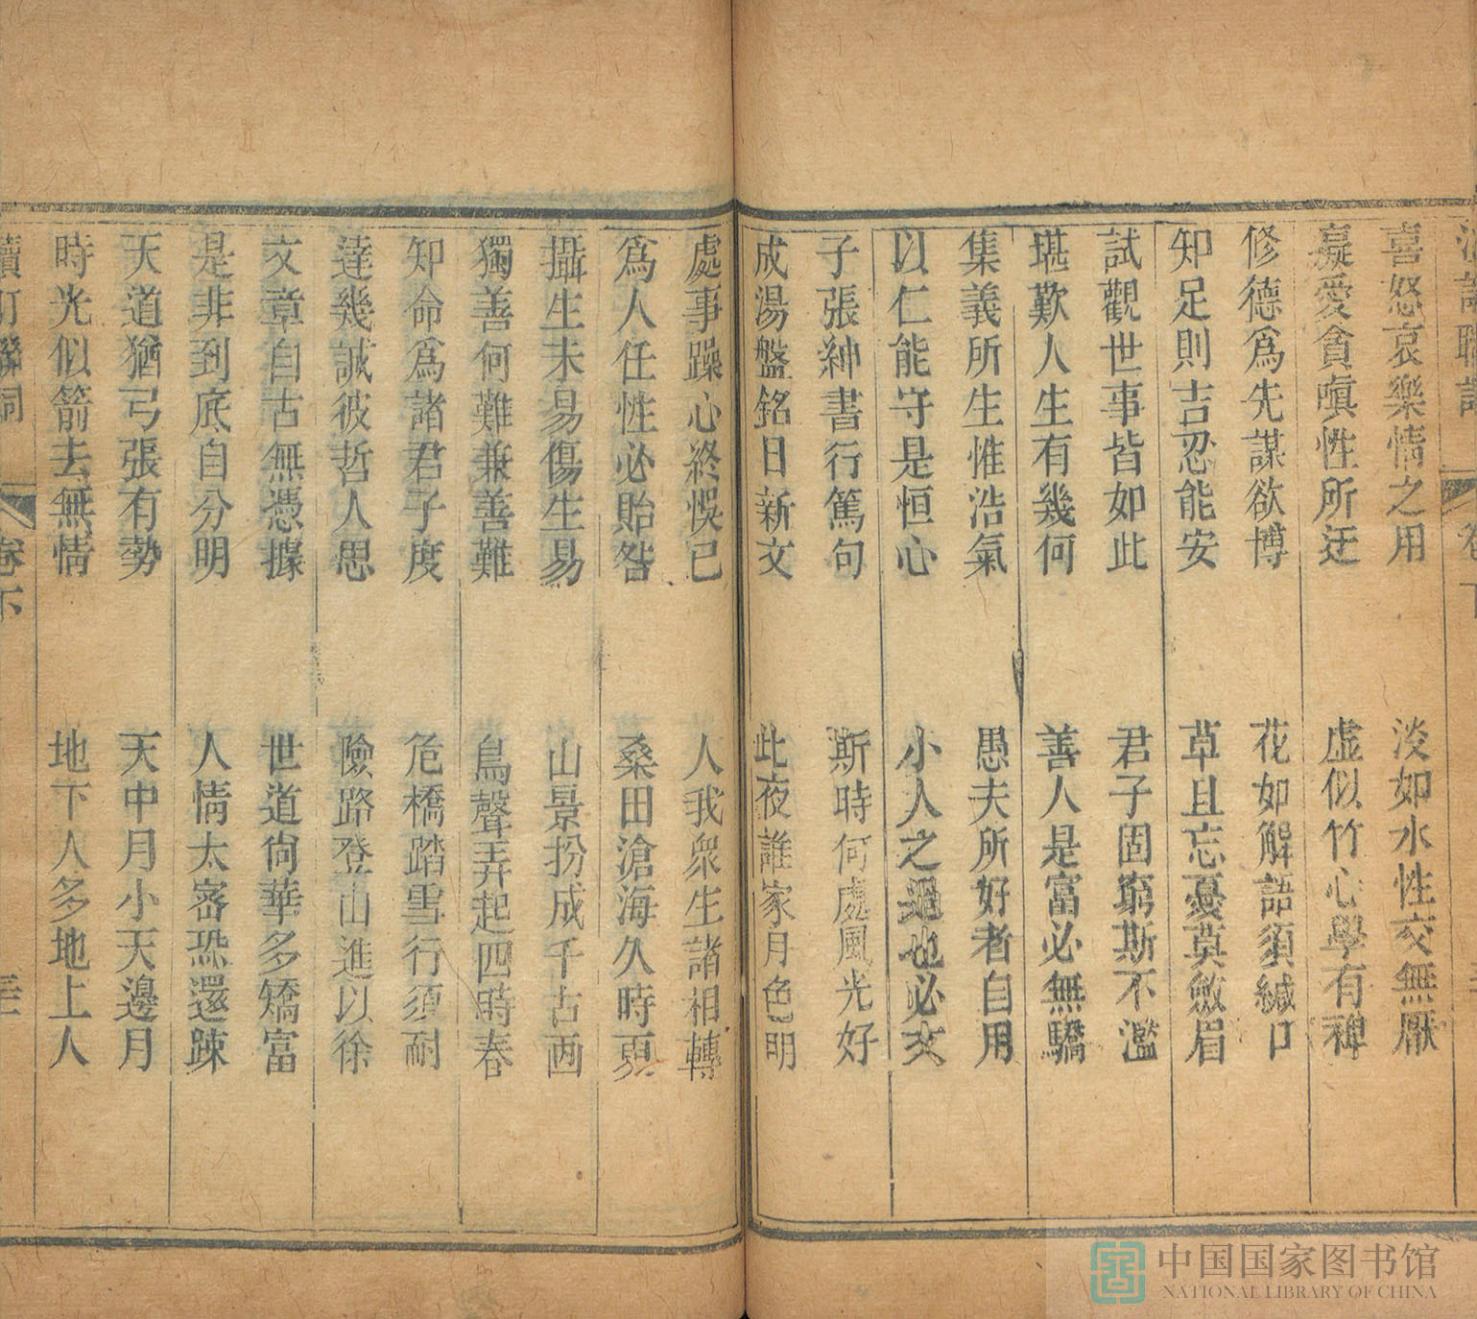 喜怒哀樂情之用　淡如水性交無厭
癡愛貪嗔性所迂　虛似竹心學有裨
修德爲先謀欲博　花如解語須緘口
知足則吉忍能安　草且忘憂莫斂眉
試觀世事皆如此　君子固窮斯不濫
堪歎人生有幾何　善人是富必無驕
集義所生惟浩氣　愚夫所好者自用
以仁能守是恒心　小人之過也必文
子張紳書行篤句　斯時何處風光好
成湯盤銘日新文　此夜誰家月色明
處事躁心終悞已　人我衆生諸相轉
爲人任性必貽咎　桑田滄海久時更
攝生未易傷生易　山景扮成千古画
獨善何難兼善難　鳥聲弄起四時春
知命爲諸君子度　危橋踏雪行須耐
達幾誠彼哲人思　險路登山進以徐
文章自古無憑據　世道尙華多矯富
是非到底自分明　人情太密恐還踈
天道猶弓張有勢　天中月小天邊月
時光似箭去無情　地下人多地上人
續訂聯詞　卷下
中国国家图书馆
NATIONAL LIBRARY OF CHINA